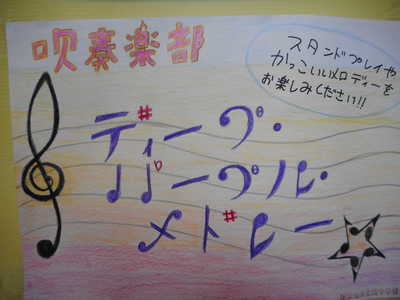 吹奏楽部
スタンドプレイや
かっこいいメロディーを
お楽しみください!!
ディープ・
パープル・
メドレー